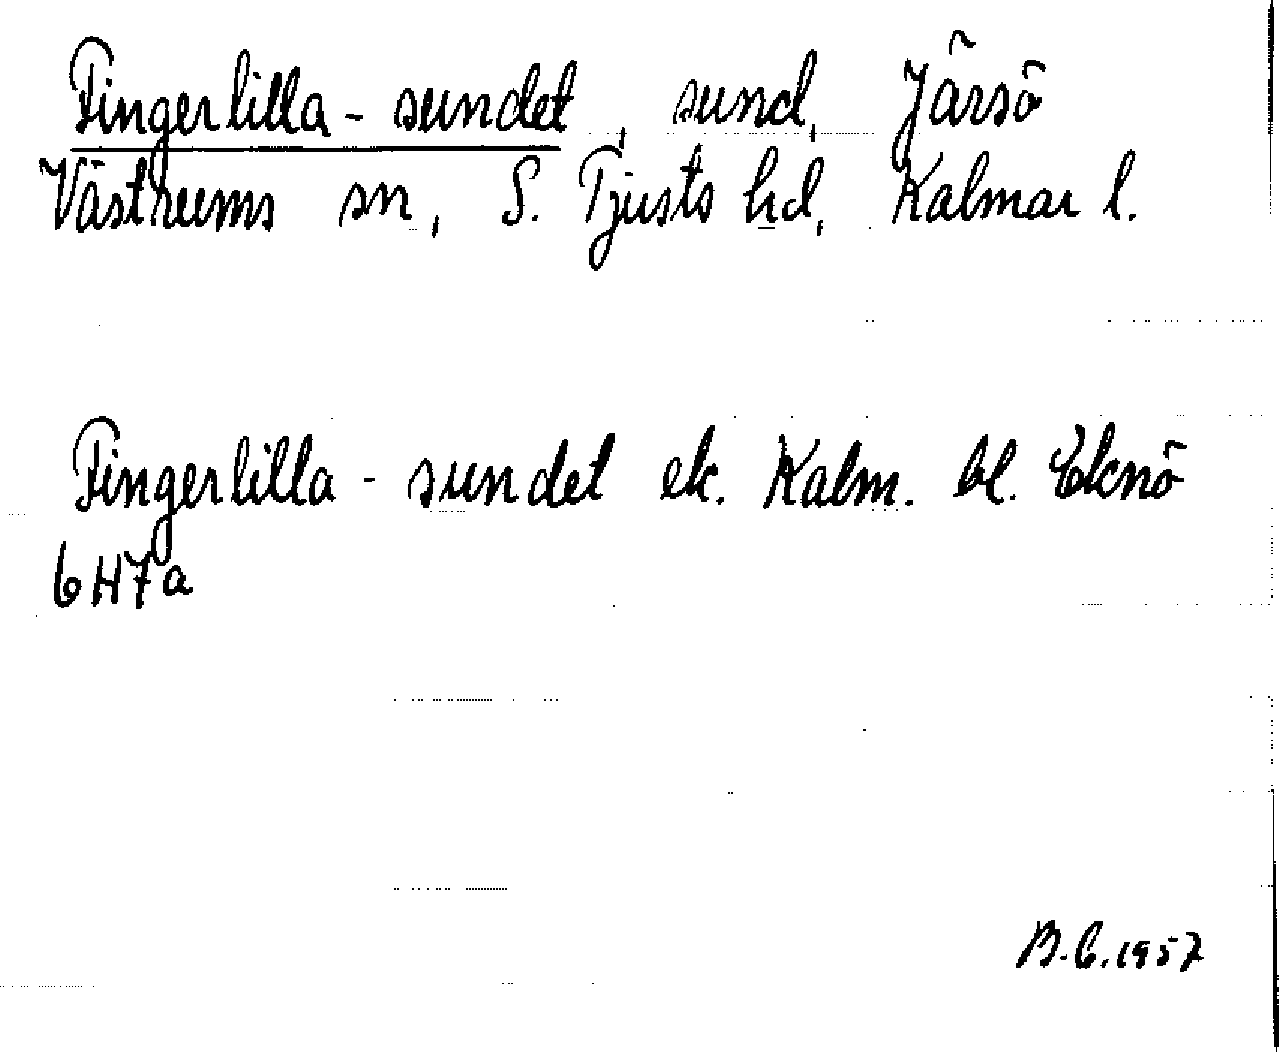 Fingerlilla - sundet, sund, Järsö
Västrums sn, S. Tjusts hd, Kalmar l.
Fingerlilla - sundet ek. Kalm. bl. Eknö
6H7a
B.C. 1957